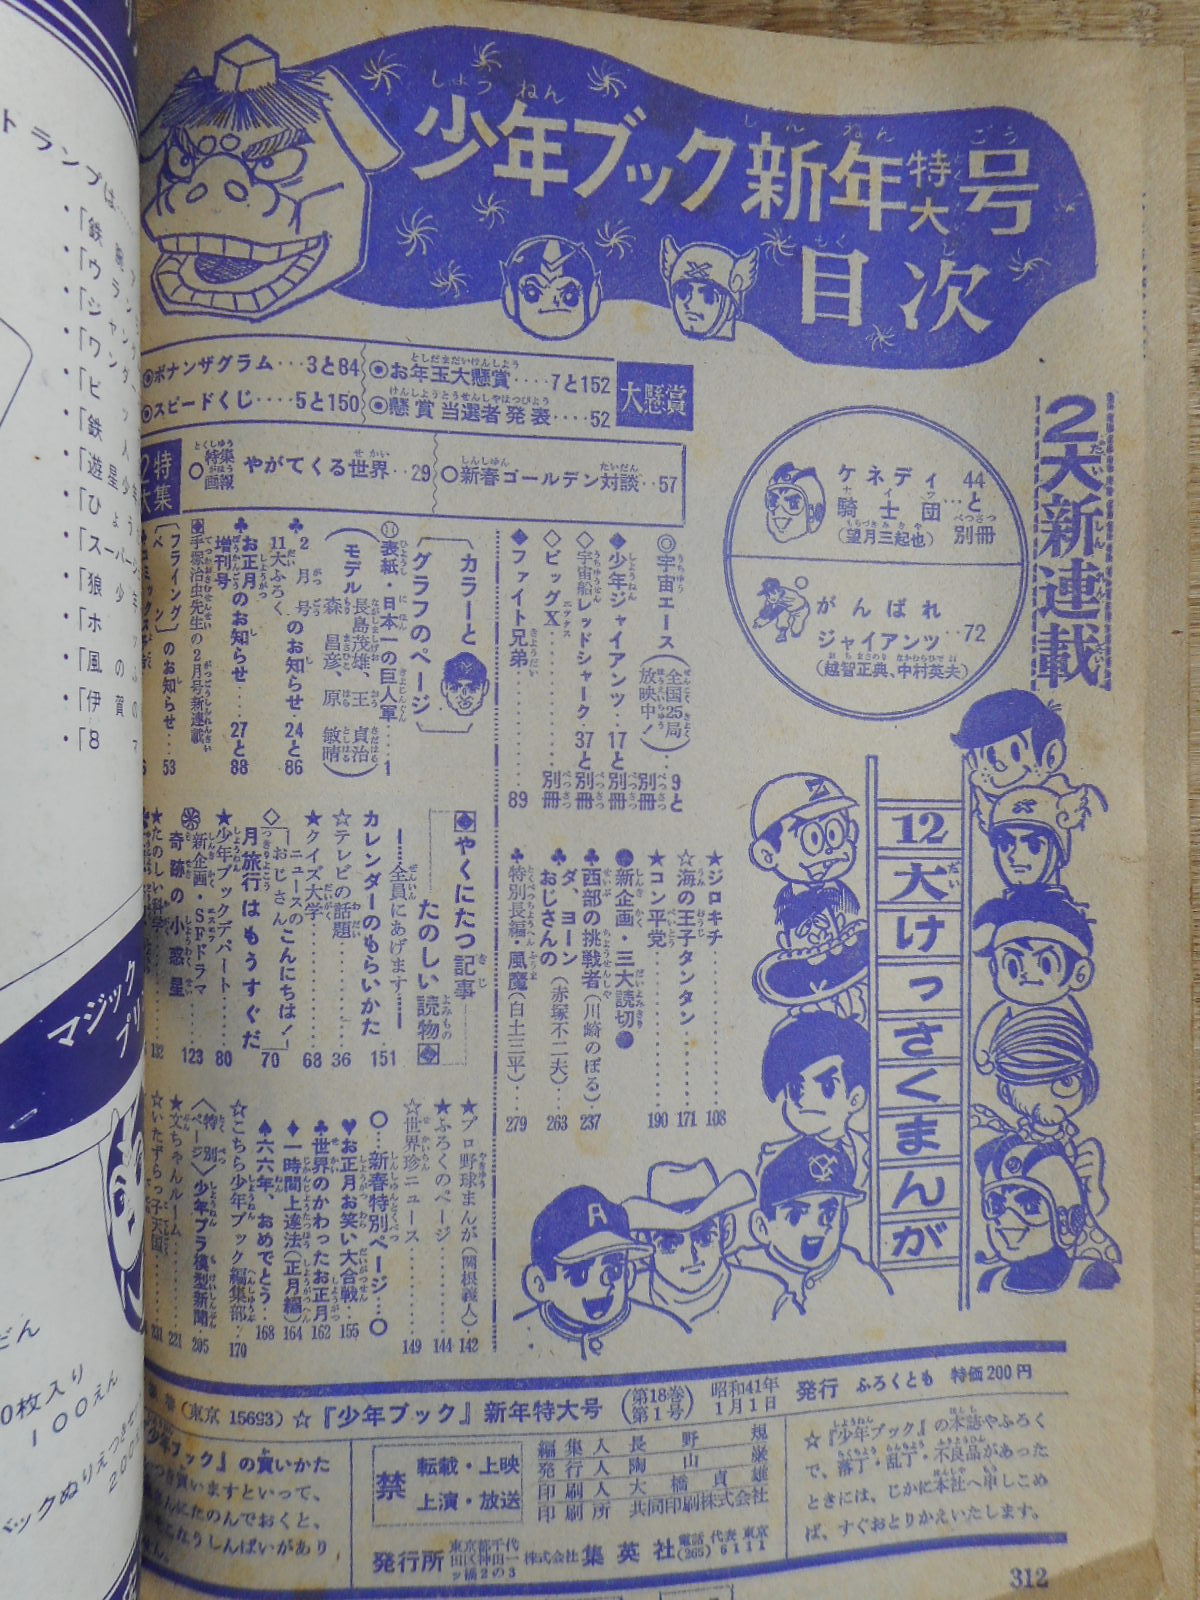 少年ブック新年特大号
目次
大懸賞
◎お年玉大懸賞‥‥7と152
◎懸賞当選者発表‥‥52
◎ボナンザグラム‥‥3と84
◎スピードくじ‥‥5と150
2大特集
○特集画報 やがてくる世界‥29
○新春ゴールデン対談‥57
2大新連載
ケネディ騎士団‥‥44と別冊
(望月三起也)
がんばれジャイアンツ‥72
(越智正典、中村英夫)
12大けっさくまんが
◎宇宙エース(全国25局放映中!)‥9と別冊
♣少年ジャイアンツ・17と別冊
◇宇宙船レッドシャーク・37と別冊
◇ビッグX‥‥別冊
♣ファイト兄弟‥‥89
★ジロキチ‥‥108
☆海の王子タンタン‥‥171
★コン平党‥‥190
●新企画・三大読切●
♣西部の挑戦者(川崎のぼる)‥237
♣ダ、ヨーンおじさんの(赤塚不二夫)‥263
♣特別長編・風魔(白土三平)‥279
カラーとグラフのページ
表紙・日本一の巨人軍‥1
(モデル 長島茂雄、王貞治 森昌彦、原敏晴)
♣2月号11大ふろくのお知らせ‥24と86
♣お正月増刊号のお知らせ‥27と88
手塚治虫先生の2月号新連載
〔フライングベン〕のお知らせ‥53
やくにたつ記事
たのしい読物
―全員にあげます―
カレンダーのもらいかた 151
☆テレビの話題‥‥36
★クイズ大学‥‥68
◇「ニュースのおじさんこんにちは!」
月旅行はもうすぐだ 70
★少年ブックデパート‥‥80
新企画・SFドラマ
奇跡の小惑星 123
★たのしい科学‥‥132
★プロ野球まんが(関根義人)‥142
★ふろくのページ‥‥144
☆世界珍ニュース‥‥149
○‥新春特別ページ‥○
♥お正月お笑い大合戦‥155
♣世界のかわったお正月 162
♦一時間上達法(正月編) 164
♠六六年、おめでとう‥168
☆こちら少年ブック編集部‥170
〈特別ページ〉少年ブラ模型新聞・205
★文ちゃんルーム‥‥221
☆いたずらっ子天国‥‥231
(東京 15693)☆『少年ブック』新年特大号(第18巻第1号)昭和41年1月1日 発行 ふろくとも 特価200円
『少年ブック』の買いかた
禁 転載・上映 上演・放送
編集人 長野規
発行人 陶山巌
印刷人 大橋貞雄
印刷所 共同印刷株式会社
発行所 東京都千代田区神田一ッ橋2の3 株式会社 集英社 電話 代表 東京(265)6111
☆『少年ブック』の本誌やふろく
で、落丁・乱丁・不良品があった
ときには、じかに本社へ申しこめ
ば、すぐおとりかえいたします。
312
トランプは
マジック
100えん